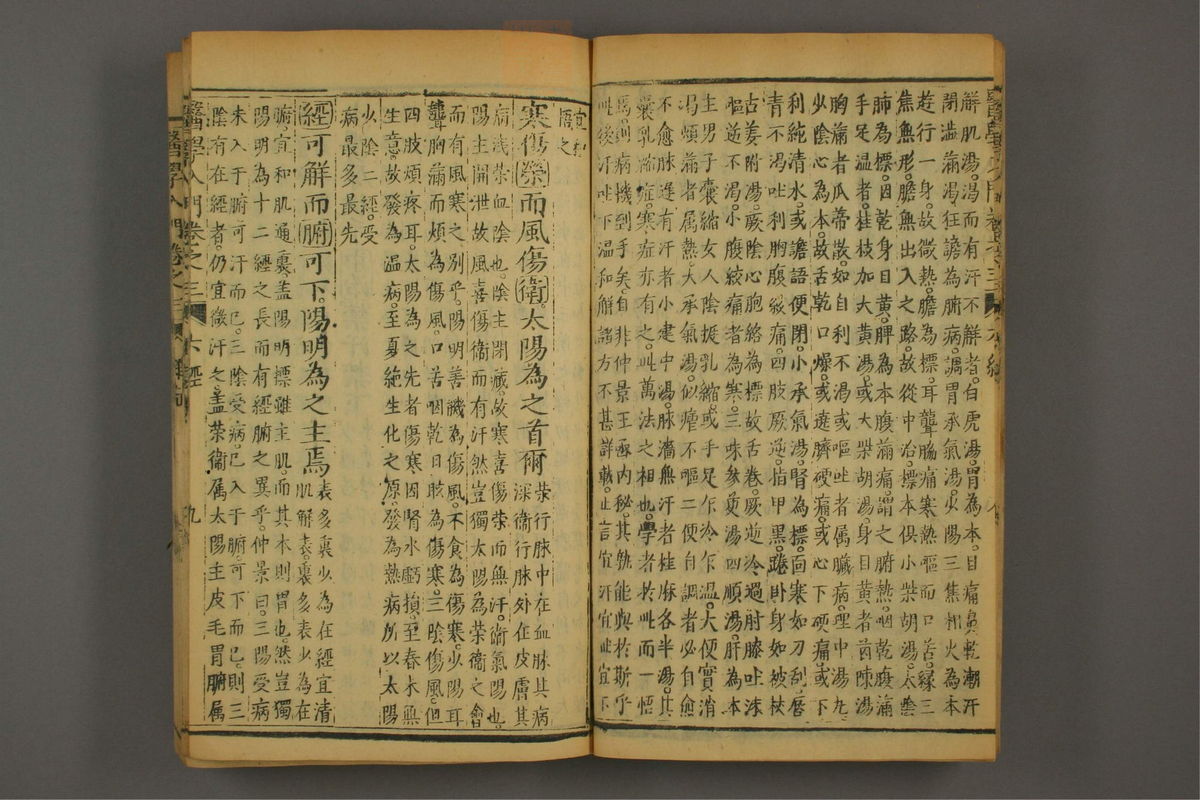 解肌湯渴而有汗不解者白虎湯胃為本目痛鼻乾潮汗
閉澁滿渴狂譫為腑病調胃承氣湯少陽三焦相火為本
遊行一身故微熱膽為標耳聾脇痛寒熱嘔而口苦緣三
焦無形膽無出入之路故從中治標本俱小柴胡湯太陰
肺為標因乾身目黃脾為本腹滿痛謂之腑熱咽乾腹滿
手足溫者桂枝加大黃湯或大柴胡湯身目黃者茵陳湯
胸滿者瓜蒂散如自利不渴或嘔吐者属臟病理中湯丸
少陰心為本故舌乾口燥或遶臍硬痛或心下硬痛或下
利純清水或譫語便閉小承氣湯腎為標面寒如刀刮唇
青不渴吐利胸腹絞痛四肢厥逆指甲黑踡卧身如被杖
古姜附湯厥陰心胞絡為標故舌卷厥逆冷過肘膝吐沫
嘔逆不渴小腹絞痛者為寒三味參萸湯四順湯肝為本
主男子囊縮女人陰挺乳縮或手足乍冷乍溫大便實消
渴煩滿者属熱大承氣湯似瘧不嘔二便自調者必自愈
不愈脉遲有汗者小建中湯脉濇無汗者桂麻各半湯其
囊乳縮症寒症亦有之此萬法之相也學者於此而一悟
焉則病機到手矣自非仲景王函内秘其孰能與於斯乎
此後汗吐下溫和解諸方不甚詳載止言宜汗宜吐宜下
宜和
悟之
寒傷榮而風傷衛太陽為之首爾
榮行脉中在血脉其病
深衛行脉外在皮膚其
病淺榮血陰也陰主閉藏故寒喜傷榮而無汗衛氣陽也
陽主開泄故風喜傷衛而有汗然豈獨太陽為榮衛之會
而有風寒之別乎陽明善饑為傷風不食為傷寒少陽耳
聾胸滿而煩為傷風口苦咽乾目眩為傷寒三陰傷風但
四肢煩疼耳太陽為之先者傷寒因腎水虧損至春木無
生意故發為溫病至夏絶生化之原發為熱病所以太陽
少陰二經受
病最多最先
經可解而腑可下陽明為之主焉
表多裏少為在經宜清
肌解表裏多表少為在
腑宜和肌通裏盖陽明標雖主肌而其本則胃也然豈獨
陽明為十二經之長而有經腑之異乎仲景曰三陽受病
未入于腑可汗而已三陰受病已入于腑可下而已則三
陰有在經者仍宜微汗之盖榮衛属太陽主皮毛胃腑属
醫學入門卷之三
六經
九